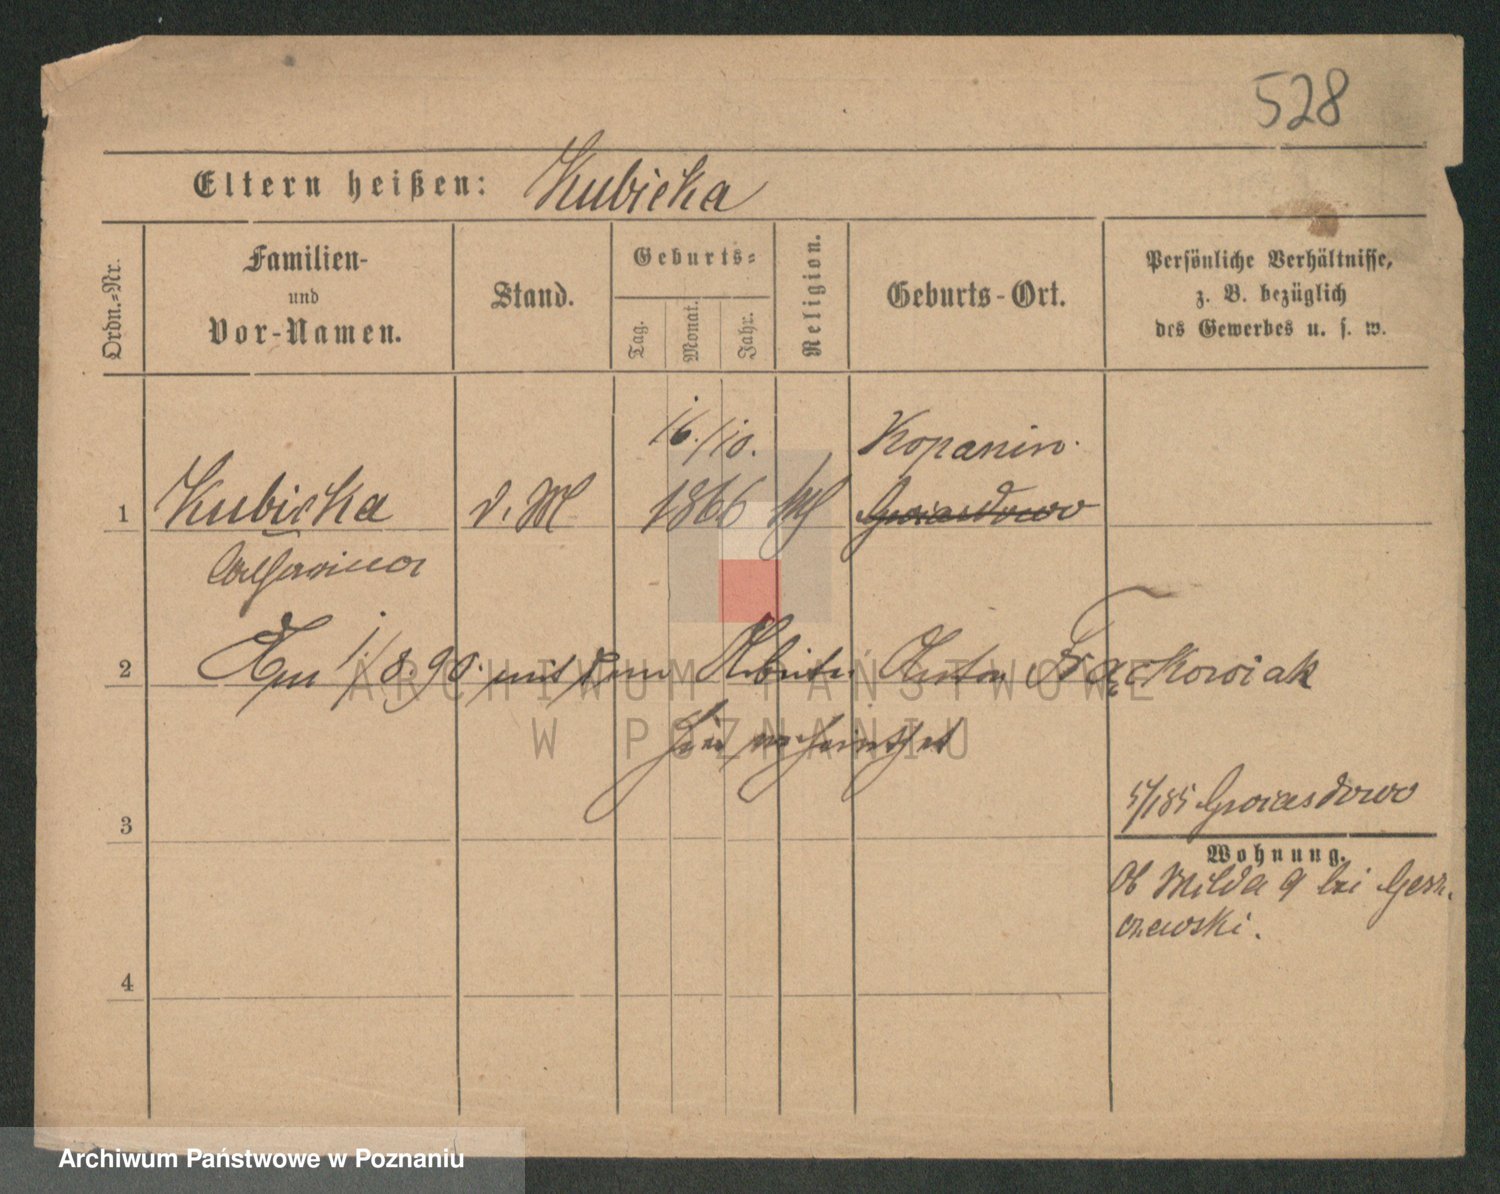 528
Eltern heißen: Kubicka
Ordn.=Nr.
Familien-
und
Vor-Namen.
Stand.
Geburts=
Tag.
Monat.
Jahr.
Religion.
Geburts-Ort.
Persönliche Verhältnisse,
z. B. bezüglich
des Gewerbes u. s. w.
16./10. Kopanin
1 Kubicka d. M 1866 Gwiasdowo
2 Am 1./8.90. mit dem Arbeiter Anton Frąckowiak
hier verheirathet
ARCHIWUM PAŃSTWOWE
W POZNANIU
5/185 Gwiasdowo
3
Wohnung.
Ob Wilda 9 bei Gesz-
czewski.
4
Archiwum Państwowe w Poznaniu